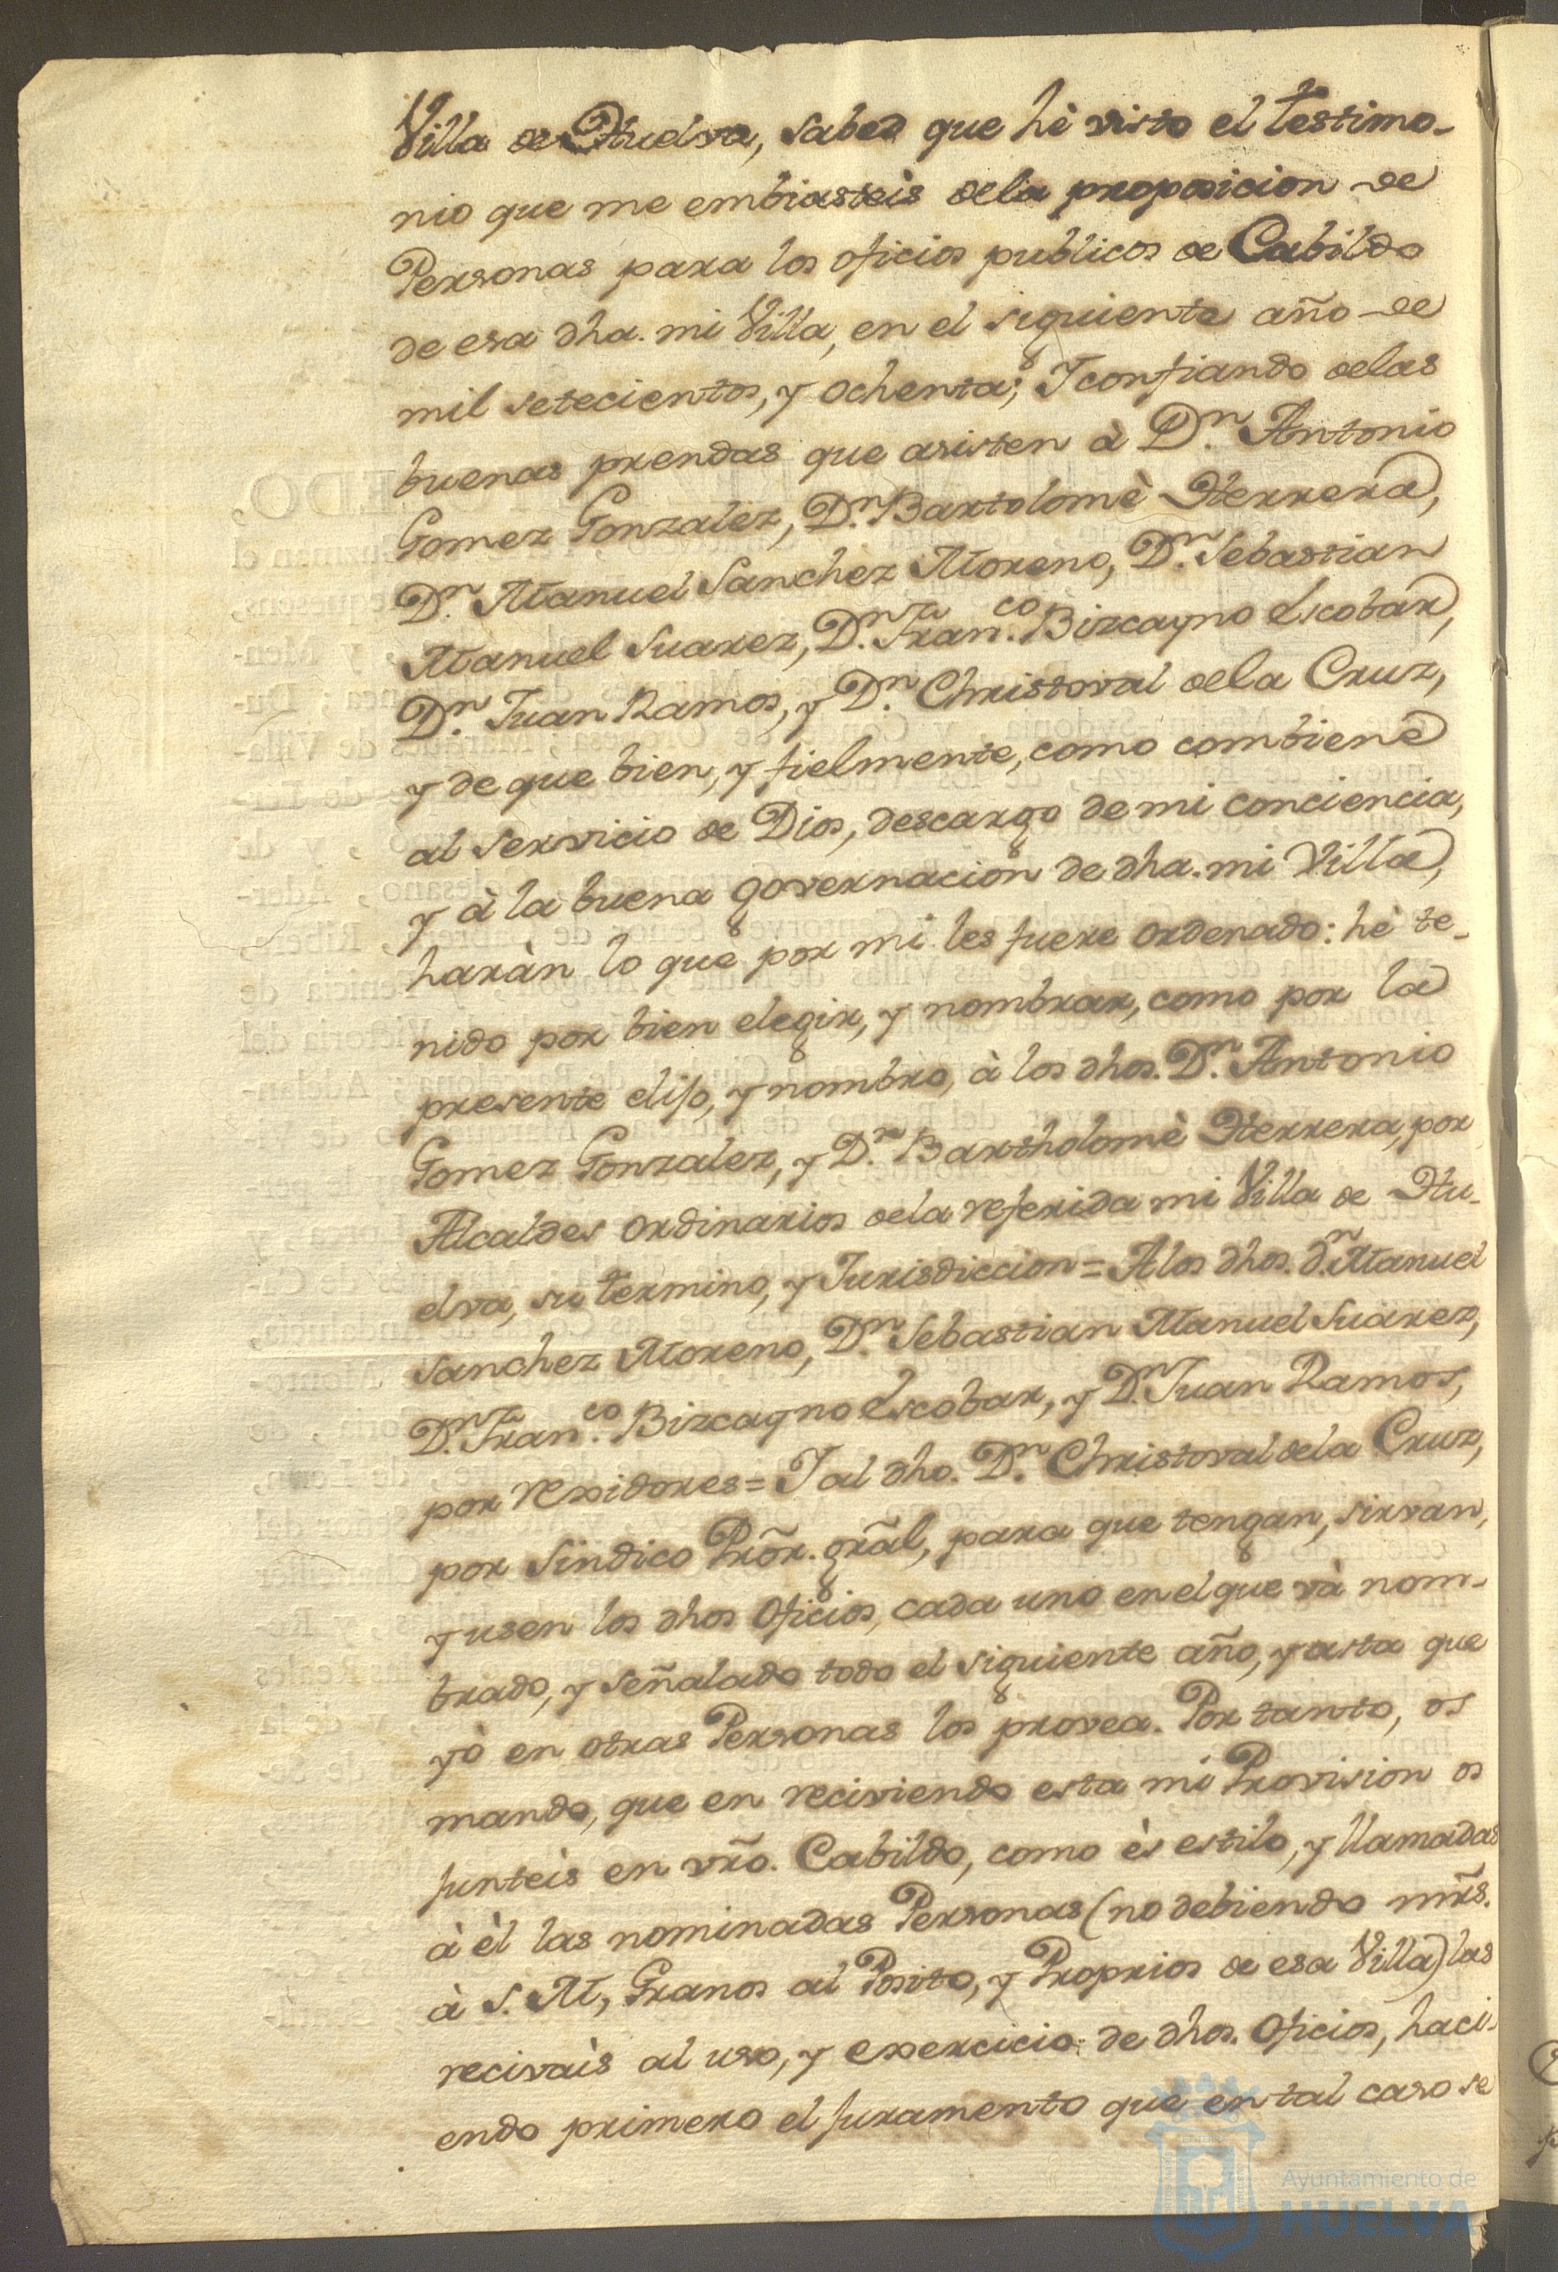 Villa de Huelva, sabed que hè visto el testimo-
nio que me embiasteis dela proposicion de
Personas para los oficios publicos de Cabildo
de esa dha. mi Villa, en el siguiente año de
mil setecientos, y ochenta; Y confiando delas
buenas prendas que asisten à Dn. Antonio
Gomez Gonzalez, Dn. Bartolomè Herrera,
Dn. Manuel Sanchez Moreno, Dn. Sebastian
Manuel Suarez, Dn. Franco. Bizcayno Escobar,
Dn. Juan Ramos, y Dn. Christoval dela Cruz,
y de que bien, y fielmente, como combiene
al servicio de Dios, descargo de mi conciencia,
y à la buena governacion de dha. mi Villa,
haràn lo que por mi les fuere ordenado: hè te-
nido por bien elegir, y nombrar, como por la
presente elijo, y nombro, à los dhos. Dn. Antonio
Gomez Gonzalez, y Dn. Bartholomè Herrera, por
Alcaldes ordinarios dela referida mi Villa de Hu-
elva, su termino, y Jurisdiccion = A los dhos. dn. Manuel
Sanchez Moreno, Dn. Sebastian Manuel Suarez,
Dn. Franco. Bizcayno Escobar, y Dn. Juan Ramos,
por rexidores = Y al dho. Dn. Christoval dela Cruz,
por Sindico Prõr. grãl, para que tengan, sirvan,
y usen los dhos oficios, cada uno en el que và nom-
brado, y señalado todo el siguiente año, y asta que
yò en otras Personas los provea. Por tanto, os
mando, que en reciviendo esta mi Provision os
junteis en vrõ. Cabildo, como ès estilo, y llamadas
à èl las nominadas Personas (no debiendo mrs̃.
à S. M, Granos al Posito, y Proprios de esa Villa) las
recivais al uso, y exercicio de dhos. oficios, haci-
endo primero el juramento que en tal caso se
Ayuntamiento de
HUELVA